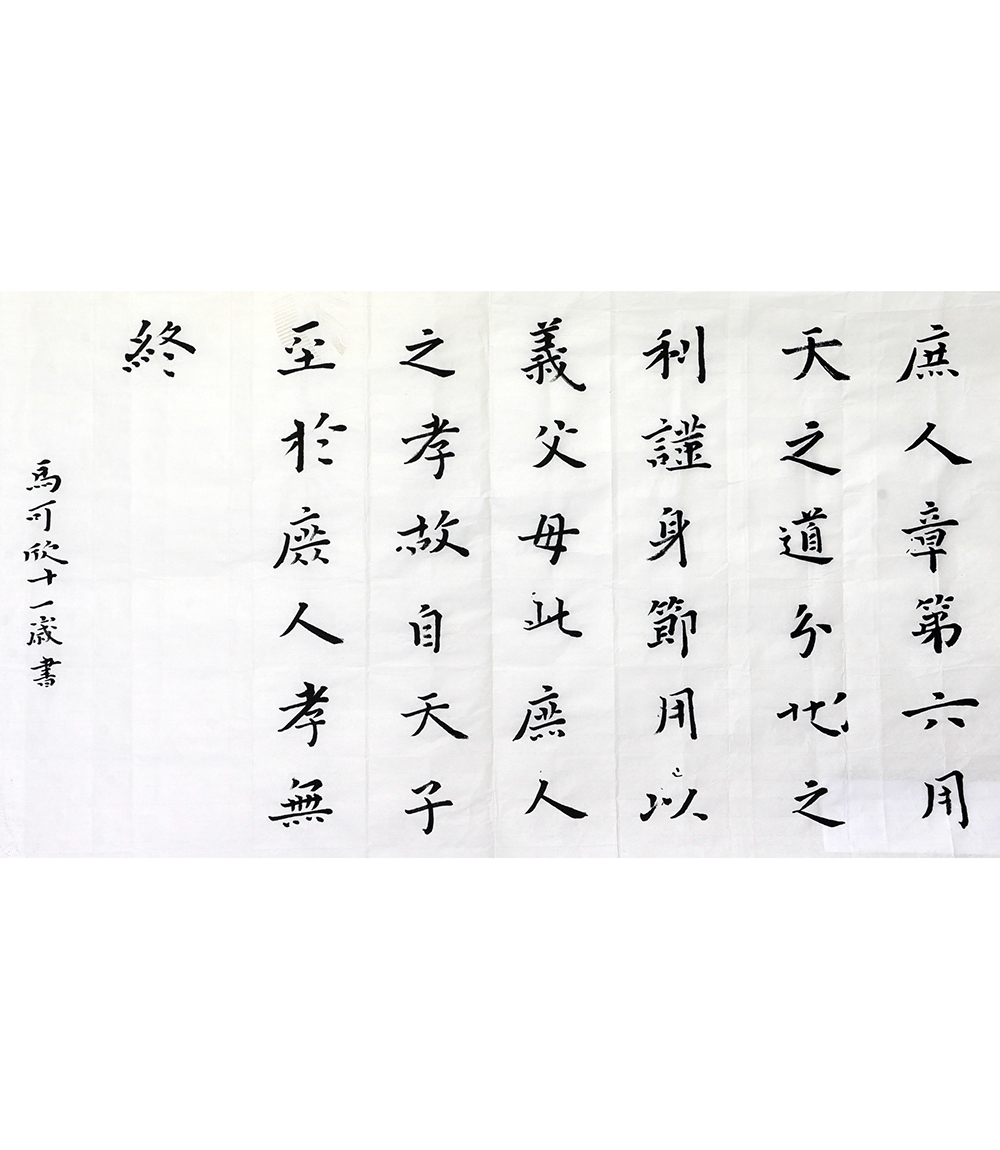 庶人章第六用
天之道分地之
利謹身節用以
養父母此庶人
之孝故自天子
至於庶人孝無
終
馬可欣十一歲書